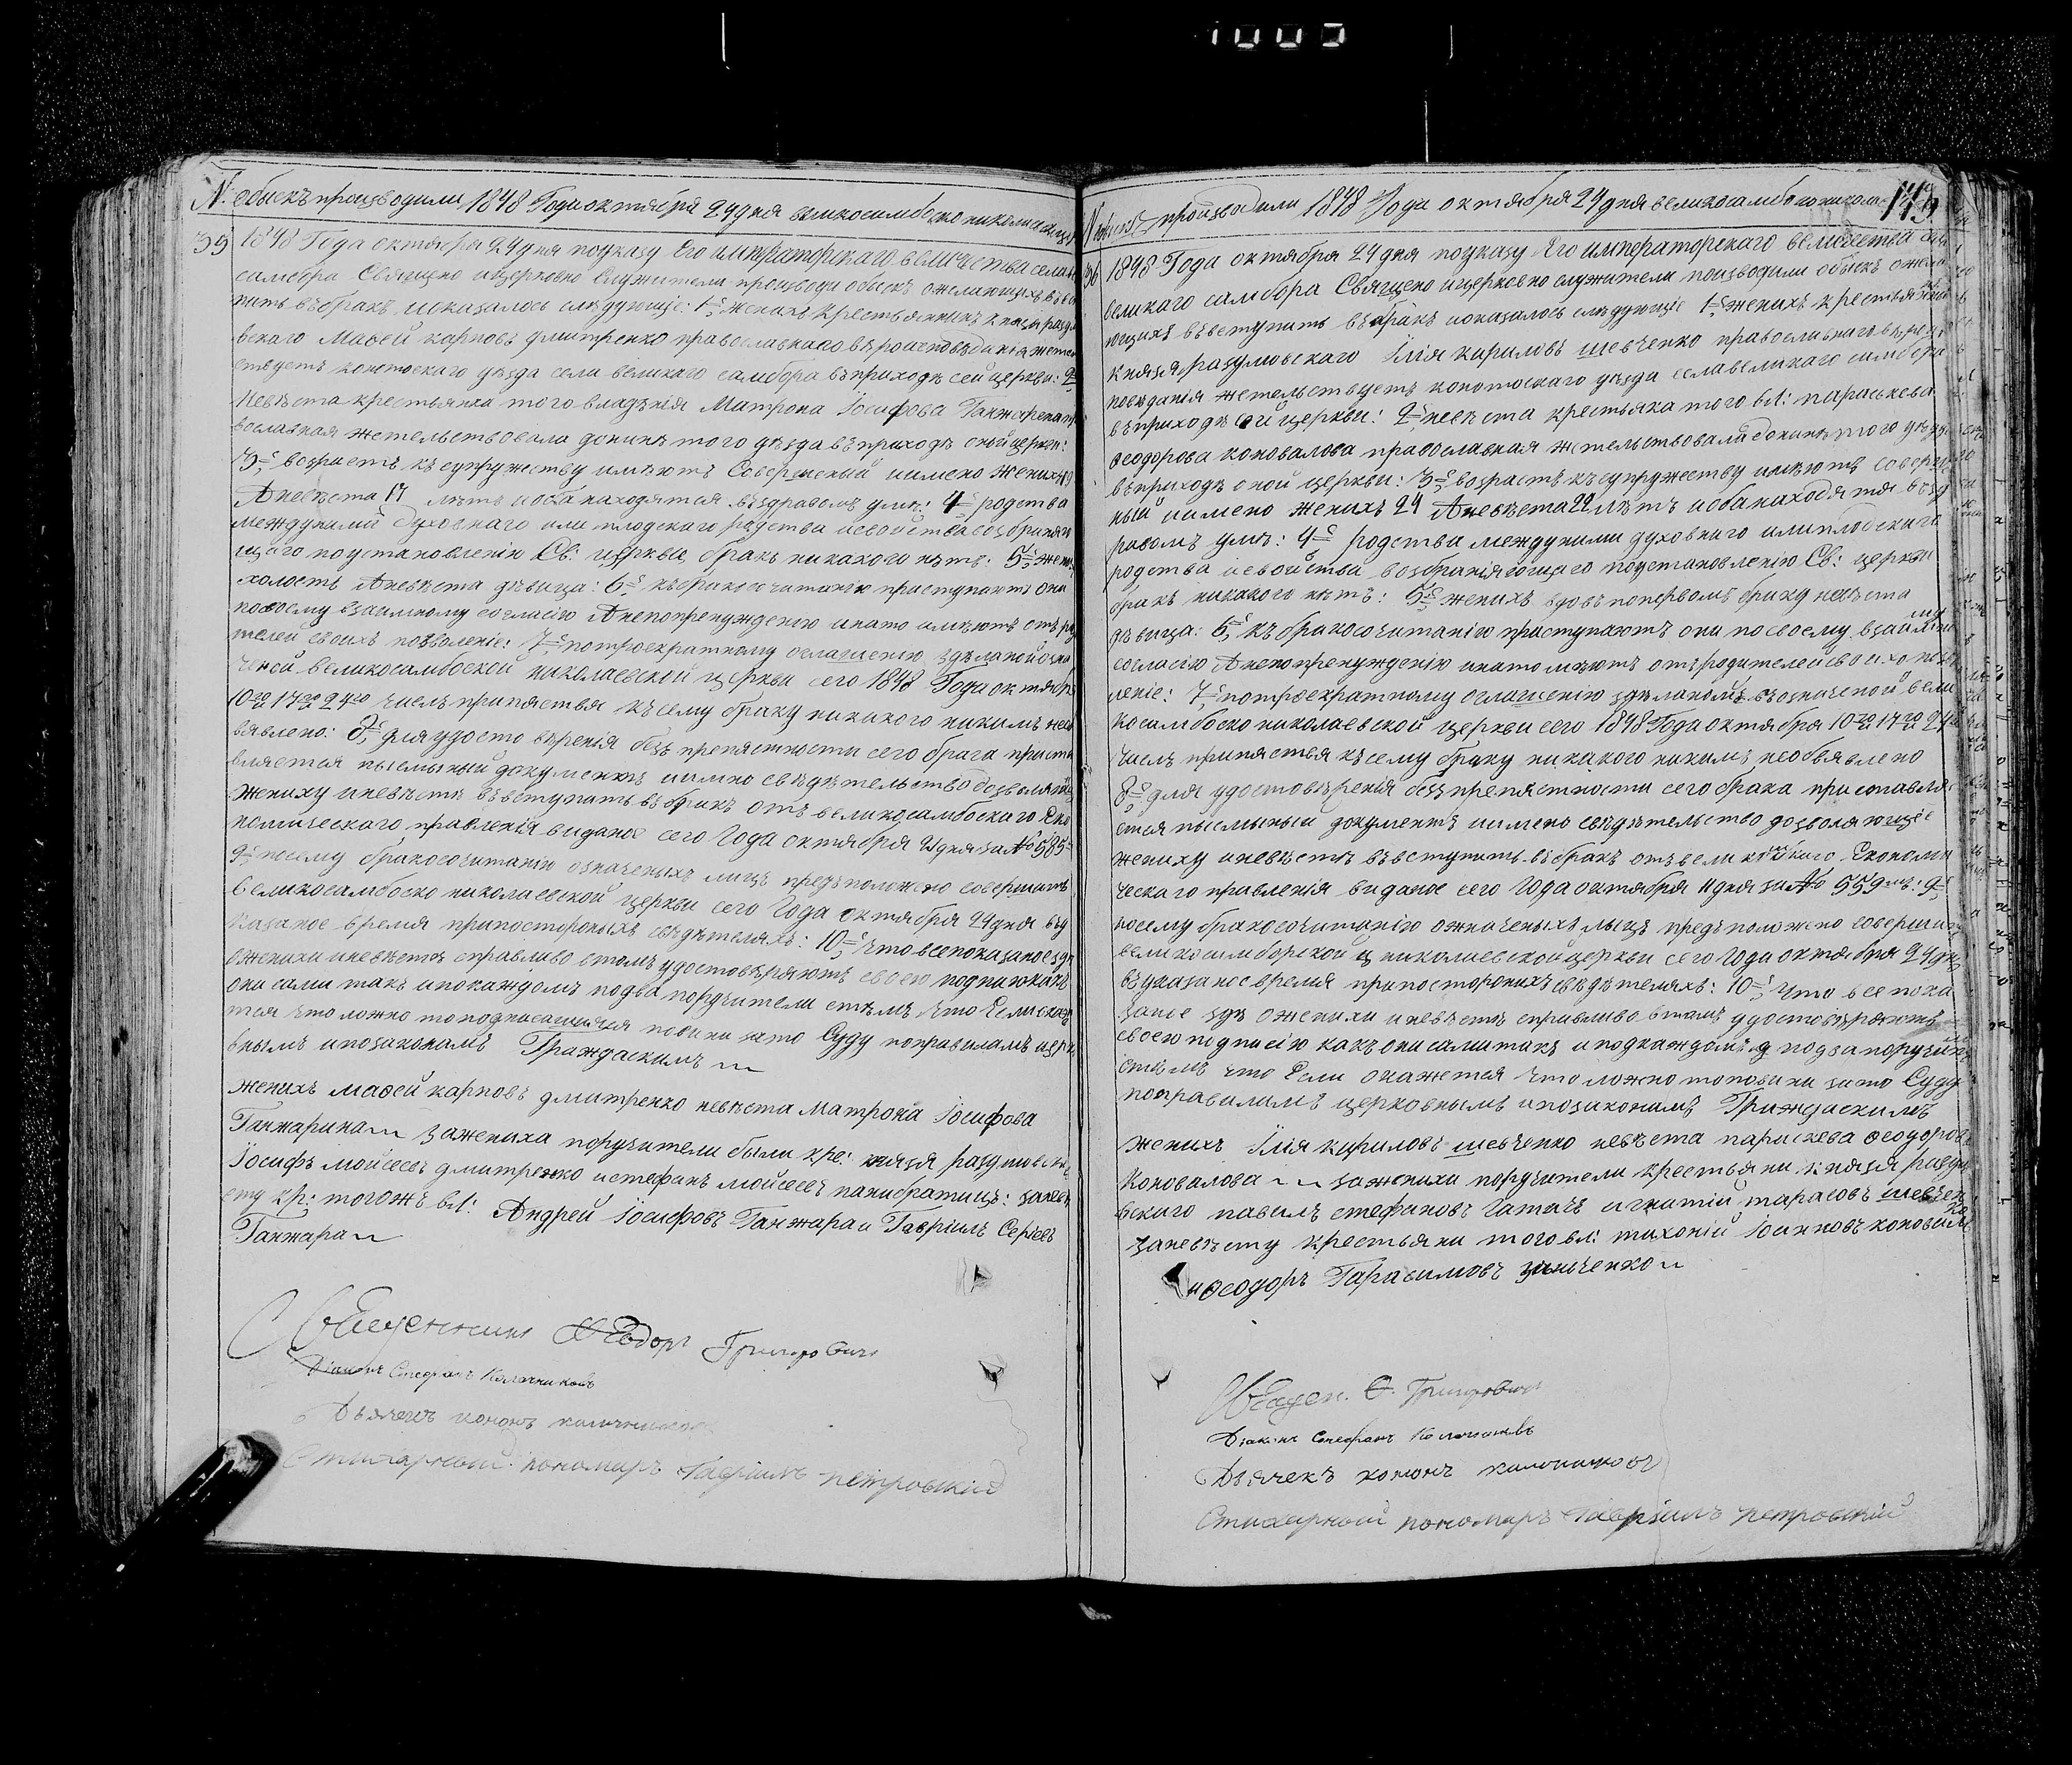 1003
№ обыскъ производили 1848 Года октября 24 дня великосамбоско николаевс
35 1848 Года октября 24 дня поуказу Его императорскаго величества села
самбора Священо ицерковно Служители производи обыскъ ожелающихъ въвсту
пить въбракъ ипоказалось слѣдующіе: 1е женихъ крестьянинъ князя разум
вскаго Маѳей карповъ дмитренко православнаго вѣроисповѣданія жител
ствуетъ конотоскаго уѣзда села великаго самбора въприходѣ сей церкви: 2е
Невѣста крестьянка того владѣнія Матрона Іосифова Ганжарина пра
вославная жетельствовала донинѣ того уѣзда въприходѣ оной церкви:
3е возрастъ къ супружеству имѣютъ Совершеный иимено женихъ
Аневѣста 17 лѣтъ иоба находятся въздравомъ умѣ: 4е родства
междуними духовнаго или плодскаго родства исвойства возбраняю
щаго поустановленію Св: церкви, бракъ никакого нѣтъ: 5е жених
холостъ Аневѣста дѣвица: 6е къбракосочитанію приступаютъ они
посвоему взаимному согласію Анепопренужденію инато имѣютъ отъ ро
телей своихъ позволеніе: 7е потроекратному оглашенію здѣланой озна
ченой великосамбоской николаевской церкви сего 1848 Года октября
10го 17го 24го числъ припяствя къ сему браку никакого никимъ необ
вявлено: 8е для удосто вѣренія безъ препятности сего брага приста
вляется пысмыный документъ иимно свѣдѣтельство дозволяющ
жениху иневѣстѣ въвступить въбракъ отъ великосамбоскаго Еко
номическаго правленія виданое сего Года октября 11 дня за № 585
9е посему бракосочитанію означеныхъ лицъ предположено совершить
Великосамбоско николаевской церкви сего Года октября 24 дня въу
казаное время припостороныхъ свѣдѣтеляхъ: 10е что все показаное здѣ
оженихи иневѣстѣ справливо втомъ удостовѣряютъ своею подписю какъ
они сами такъ ипокаждомъ подва поручители стѣмъ что Если окаж
тся что ложно топодписавшіися повини зато Суду поправиламъ церко
внымъ ипозаконамъ Граждаскимъ
женихъ маѳей карповъ дмитренко невѣста матрона Іосифова
Ганжарина зажениха поручители были кре: князя разумовска
Іосифъ мойсеевъ дмитренко истефанъ мойсеевъ панибратицъ: заневѣ
сту кр: тогожъ вл: Андрей Іосифовъ Ганжара и Гавріилъ Сергеев
Ганжара
Священникъ Ѳеодоръ Григоровичъ
Діаконъ Стефанъ Колачниковъ
Дьячекъ кононъ калачников
Стихарный пономаръ Гавріилъ петровский
№ обискъ производили 1848 Года октября 24 дня великосамбо ко никола 143
36 1848 Года октября 24 дня поуказу Его императорскаго величества села
великаго самбора Священо ицерковно служители поизводили обыскъ ожела
ющихъ въвступить въбракъ ипоказалось слѣдующіе 1е женихъ крестьянинъ
князя разумовскаго Илія кириловъ шевченко православнаго вѣроис
повѣданія жетельствуетъ конотоскаго уѣзда села великаго самбора
въприходѣ сей церкви: 2е невѣста крестьяка того вл: параскева
ѳеодорова коновалова православная жетельствовала донинѣ того уѣзд
въприходѣ оной церкви: 3е возрастъ къ супружеству имѣютъ соверше
ный иимено женихъ 24 Аневѣста 22 лѣтъ иоба находятся възд
равомъ умѣ: 4е родства междуними духовнаго илиплодскаго
родства исвойства возбраняющаго поустановленію Св: церкви
бракъ никакого нѣтъ: 5е женихъ вдовъ попервомъ браку невѣста
дѣвица: 6е къ бракосочитанію приступаютъ они посвоему взаимному
согласію Анепопренужденію инато имѣютъ отъ родителей своихъ позв
леніе: 7е потроекратному оглашенію здѣланомъ въозначеной вели
косамбоско николаевской церкви сего 1848 Года октября 10го 17го 24
числъ припяствя къ сему браку никакого никимъ необявлено
8е для удостовѣренія безъпрепятности сего брака приставля
ется пысмыный документъ иимено свѣдѣтельство дозволяющіе
жениху иневѣстѣ въвступить въбракъ отъ вели Економи
ческаго правленія виданое сего Года октября 11 дня за № 559мъ: 9е
посему бракосочитанію ожначеныхъ лыцъ предъположено совершит
великосамборской николаевской церкви сего Года октября 24 дня
въуказаное время припосторонихъ свѣдѣтеляхъ: 10е что все пока
заное здѣ оженихи иневѣстѣ справливо втомъ удостовѣряютъ
своею подписію какъ они сами такъ и подкаждомъ подва поручит
стѣмъ что Если окажется что ложно топовини зато Суду
поправиламъ церковнымъ ипозаконамъ Граждаскимъ
женихъ Илія кириловъ шевченко невѣста параскева ѳеодоров
Коновалова зажениха поручители крестьяни князя разумо
вскаго павелъ стефановъ Гатачъ игнатій тарасовъ шевченко
заневѣсту крестьяни того вл: тихоній Іоанновъ коновал
иѲеодоръ Гарасимовъ зинченко
Священ. Ѳ. Григоровичъ
Діаконъ Стефанъ Колачниковъ
Дьячекъ кононъ калачниковъ
Стихарный пономаръ Гавріилъ петровский